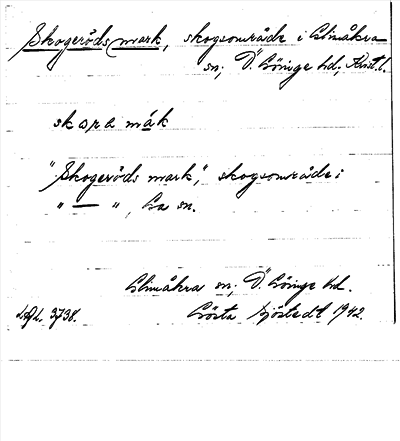 Skogeröds mark, skogsområde i Glimåkra
sn, Ö. Göinge hd, Krist. l.
skɔra mák
"Skogeröds mark", skogsområde i
" — ", Ga sn.
Glimåkra sn, Ö. Göinge hd.
Gösta Sjöstedt 1942.
3738.